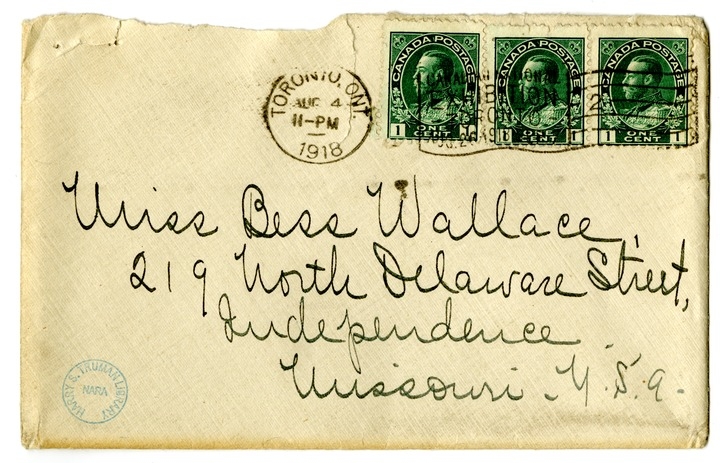 TORONTO, ONT.
AUG 4
11-PM
1918
CANADA POSTAGE
1 ONE CENT 1
CANADA POSTAGE
1 ONE CENT 1
CANADA POSTAGE
1 ONE CENT 1
EXHIBITION
Miss Bess Wallace,
219 North Delaware Street,
Independence
Missouri. U.S.A.
HARRY S. TRUMAN LIBRARY
NARA